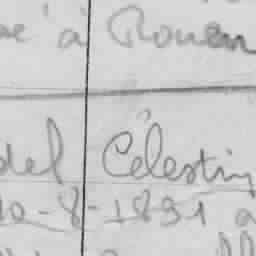 à Rouen
del Célestin
10-8-1891 à